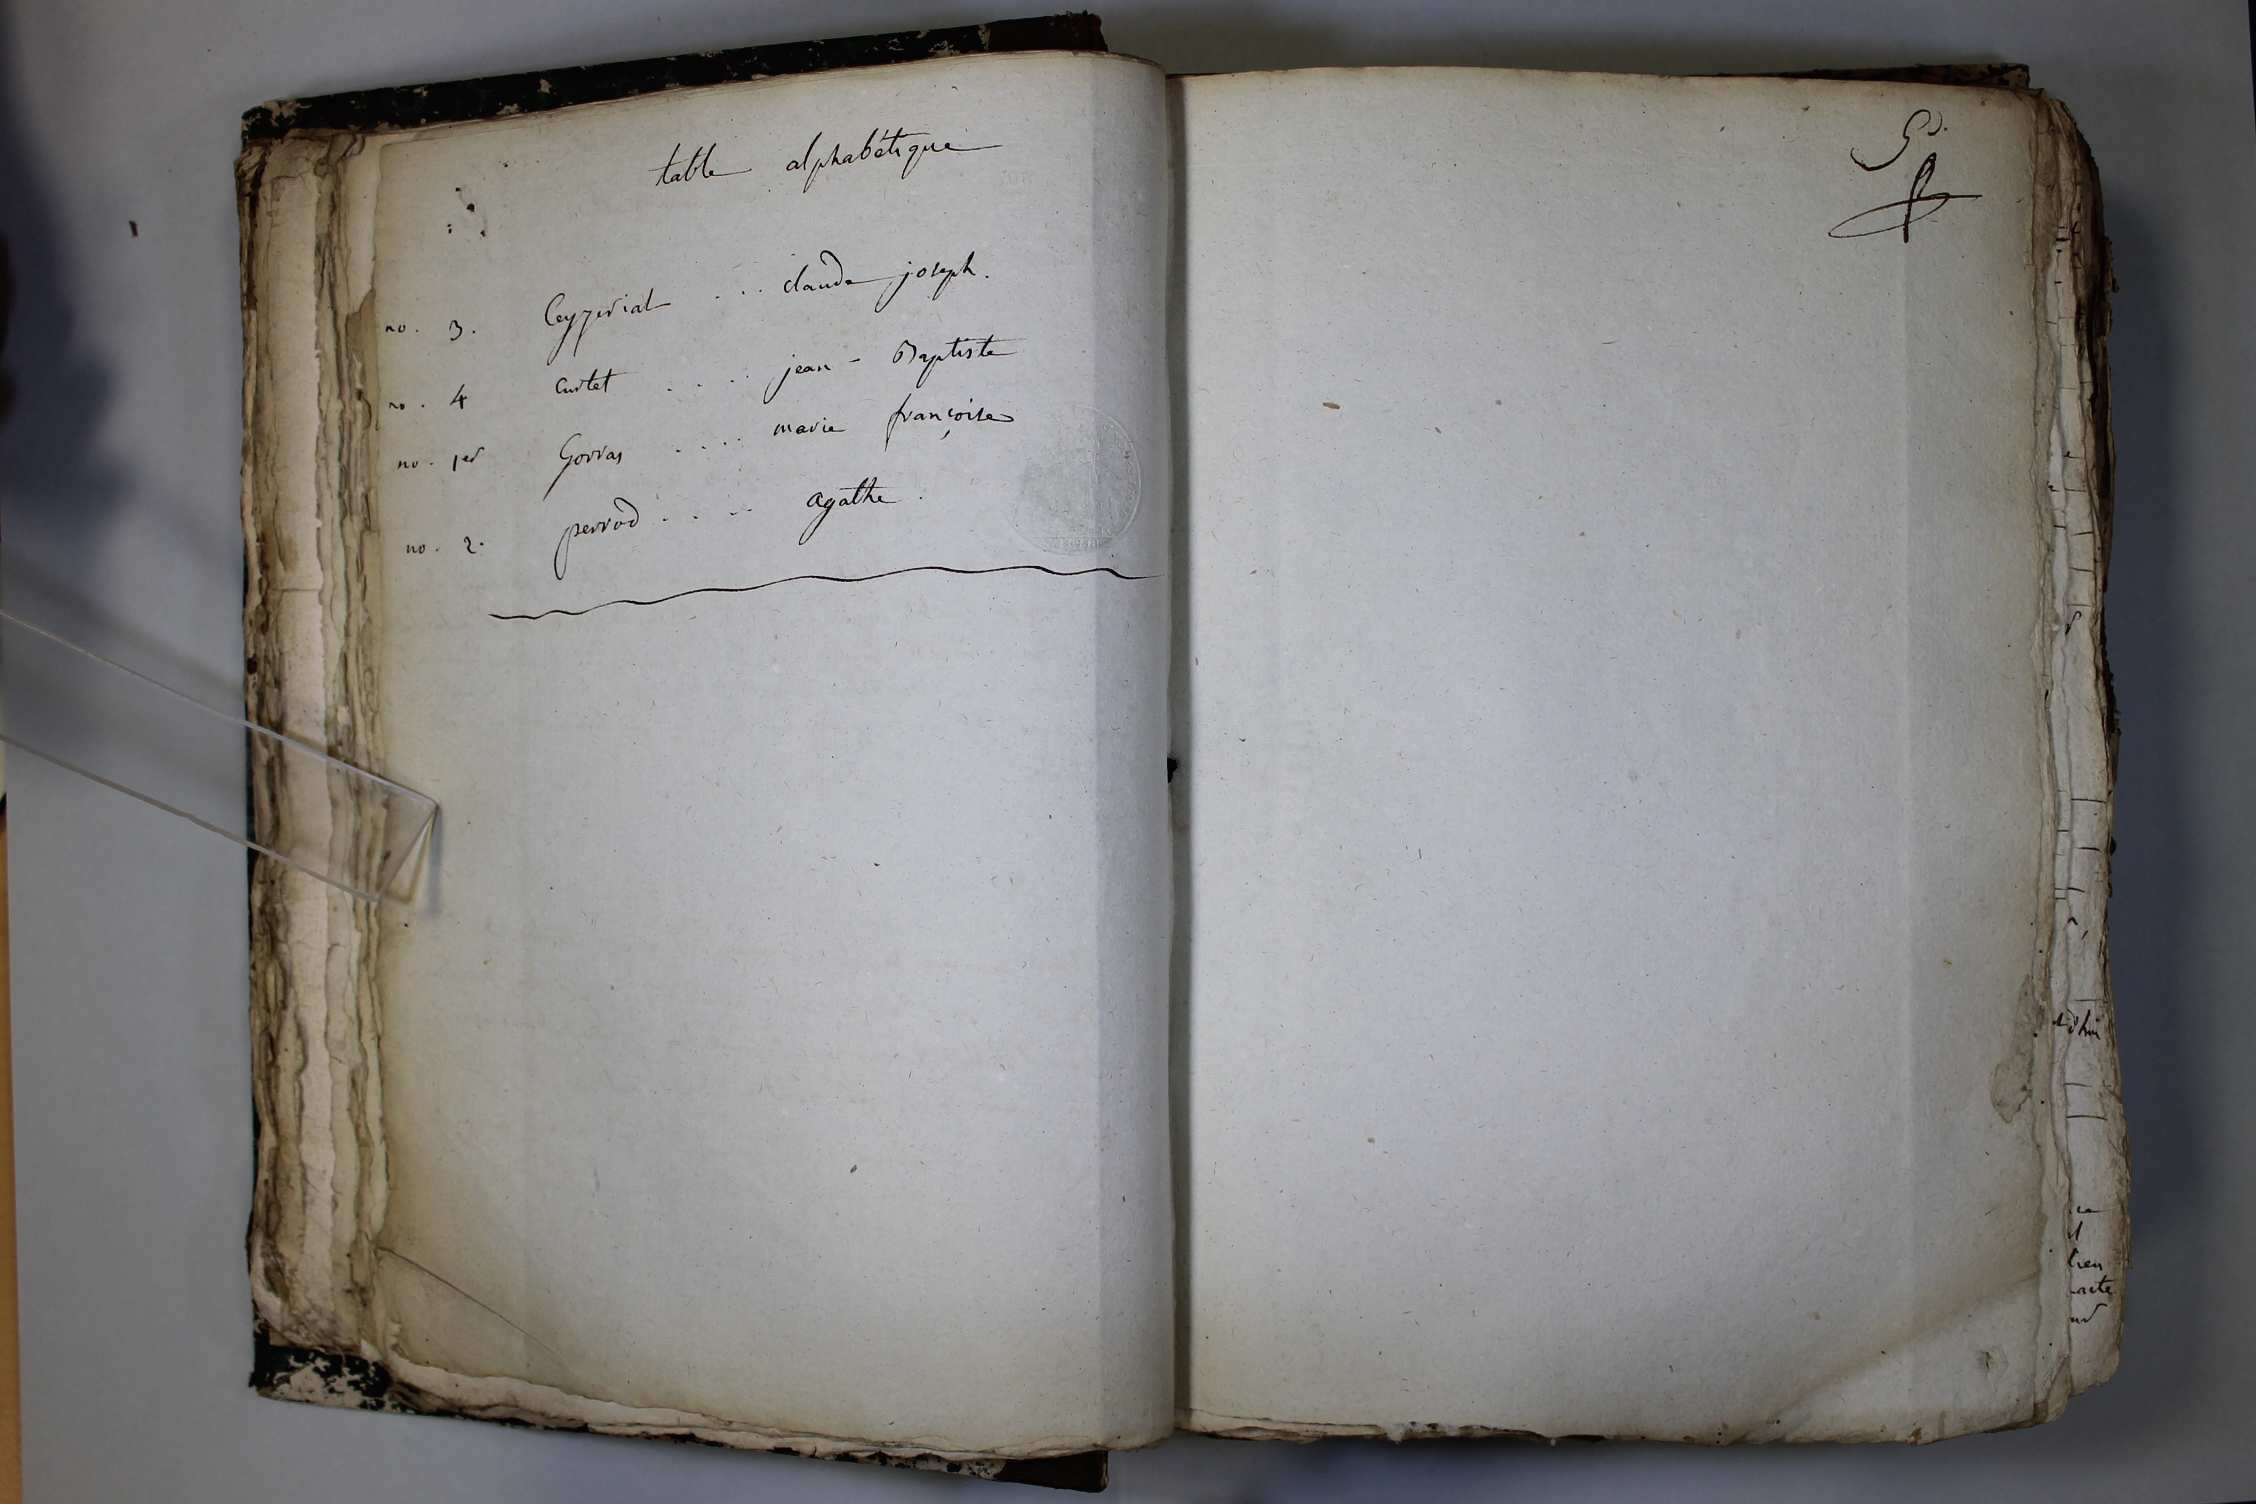 table alphabétique
no. 3. Ceyzeriat ... claude joseph.
no. 4 curtet .... jean-Baptiste
no. 1er Gorras .... marie françoise
no. 2. perrod .... agathe.